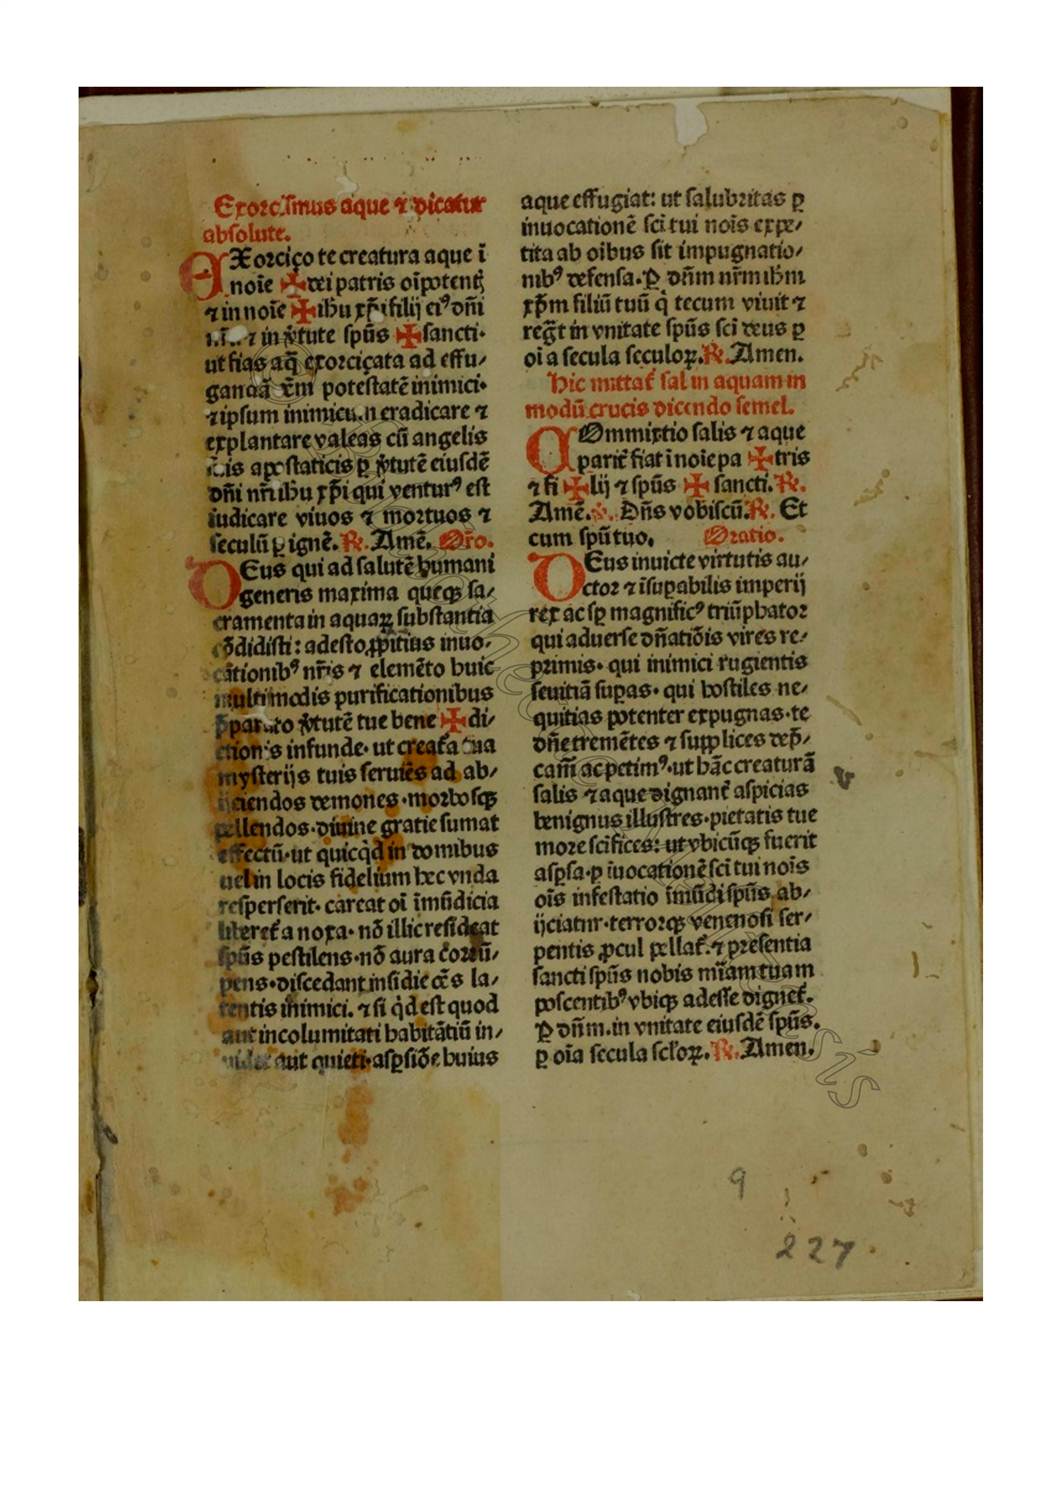 Exorcismus aque ⁊ dicatur
absolute.
EXorciço te creatura aque ī
noīe ✠ dei patris oīpotentꝭ
⁊ in noīe ✠ ihu xp̄i filij eiꝰ dn̄i
⁊ in ꝟtute spūs ✠ sancti·
ut fias aq̄ exorciçata ad effu⸗
gandā oēm potestatē inimici·
⁊ ipsum inimicum eradicare ⁊
explantare valeas cū angelis
suis apostaticis ꝑ ꝟtutē eiusdē
dn̄i nr̄i ihu xp̄i qui venturꝰ est
iudicare viuos ⁊ mortuos ⁊
seculū ꝑ ignē. ℟. Amē. Oro.
DEus qui ad salutē humani
generis maxima queqꝫ sa⸗
cramenta in aquaꝝ substantia
cōdidisti: adesto ꝓpitius inuo⸗
cationibꝰ nr̄is ⁊ elemēto huic
multimodis purificationibus
p̄parato ꝟtutē tue bene ✠ di⸗
ctionis infunde· ut creat̄a tua
mysterijs tuis seruiēs ad ab⸗
ijciendos demones· morbosqꝫ
pellendos· diuine gratie sumat
effectū· ut quicq̇d in domibus
uel in locis fidelium hec vnda
resperserit· careat oī īmūdicia
liberet̄ a noxa· nō illic resideat
spūs pestilens· nō aura corrū⸗
pens· discedant insidie oēs la⸗
tentis inimici. ⁊ si q̇d est quod
aut incolumitati habitātiū in⸗
uidet aut quieti· asꝑsiōe huius
aque effugiat: ut salubritas ꝑ
inuocationē sci tui nois expe⸗
tita ab oibus sit impugnatio⸗
nibꝰ defensa· ꝑ dn̄m nr̄m ihm
xp̄m filiū tuū q̇ tecum viuit ⁊
regt̄ in vnitate spūs sci deus ꝑ
oia secula seculoꝝ. ℟. Amen.
Hic mittat̄ sal in aquam in
modū crucis dicendo semel.
COmmixtio salis ⁊ aque
parit̄ fiat ī noīe pa ✠ tris
⁊ fi ✠ lij ⁊ spūs ✠ sancti. ℟.
Amē. ℣. Dn̄s vobiscū. ℟. Et
cum spū tuo. Oratio.
DEus inuicte virtutis au⸗
ctor ⁊ īsuꝑabilis imperij
rex ac sꝑ magnificꝰ triūphator
qui aduerse dn̄atiōis vires re⸗
primis· qui inimici rugientis
seuitiā suꝑas· qui hostiles ne⸗
quitias potenter expugnas· te
dn̄e tremētes ⁊ supplices dep̄⸗
cam̄ ac petimꝰ· ut hāc creaturā
salis ⁊ aque dignant̄ aspicias
benignus illustres· pietatis tue
more scifices: ut vbicūqꝫ fuerit
asꝑsa· ꝑ īuocationē sci tui nois
oīs infestatio īmūdi spūs ab⸗
ijciatur· terrorqꝫ venenosi ser⸗
pentis ꝓcul pellat̄· ⁊ presentia
sancti spūs nobis mīam tuam
poscentibꝰ vbiqꝫ adesse dignet̄.
ꝑ dn̄m. in vnitate eiusdē spūs.
ꝑ oīa secula scl'oꝝ. ℟. Amen.
9
227